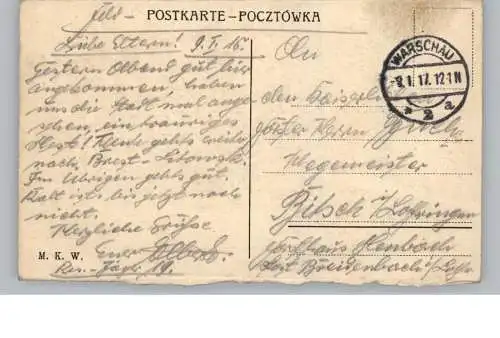 Feld-
POSTKARTE – POCZTÓWKA
Liebe Eltern! 9. I. 16.
Gestern Abend gut hier
angekommen, haben
uns die Stadt mal ange
sehen, ein trauriges
Nest! Heute gehts weiter
nach Brest-Litowsk.
Im Übrigen gehts gut.
Kalt ists bis jetzt noch
nicht.
Herzliche Grüsse
Euer Albert.
Res. Jäger 19.
M. K. W.
An
den Kaiserl.
Herrn
Hegemeister
Bitsch i/Lothringen
Forsthaus
Post Breidenbach i/Lothr.
WARSCHAU
-9.1.17.12-1N
* 2 a